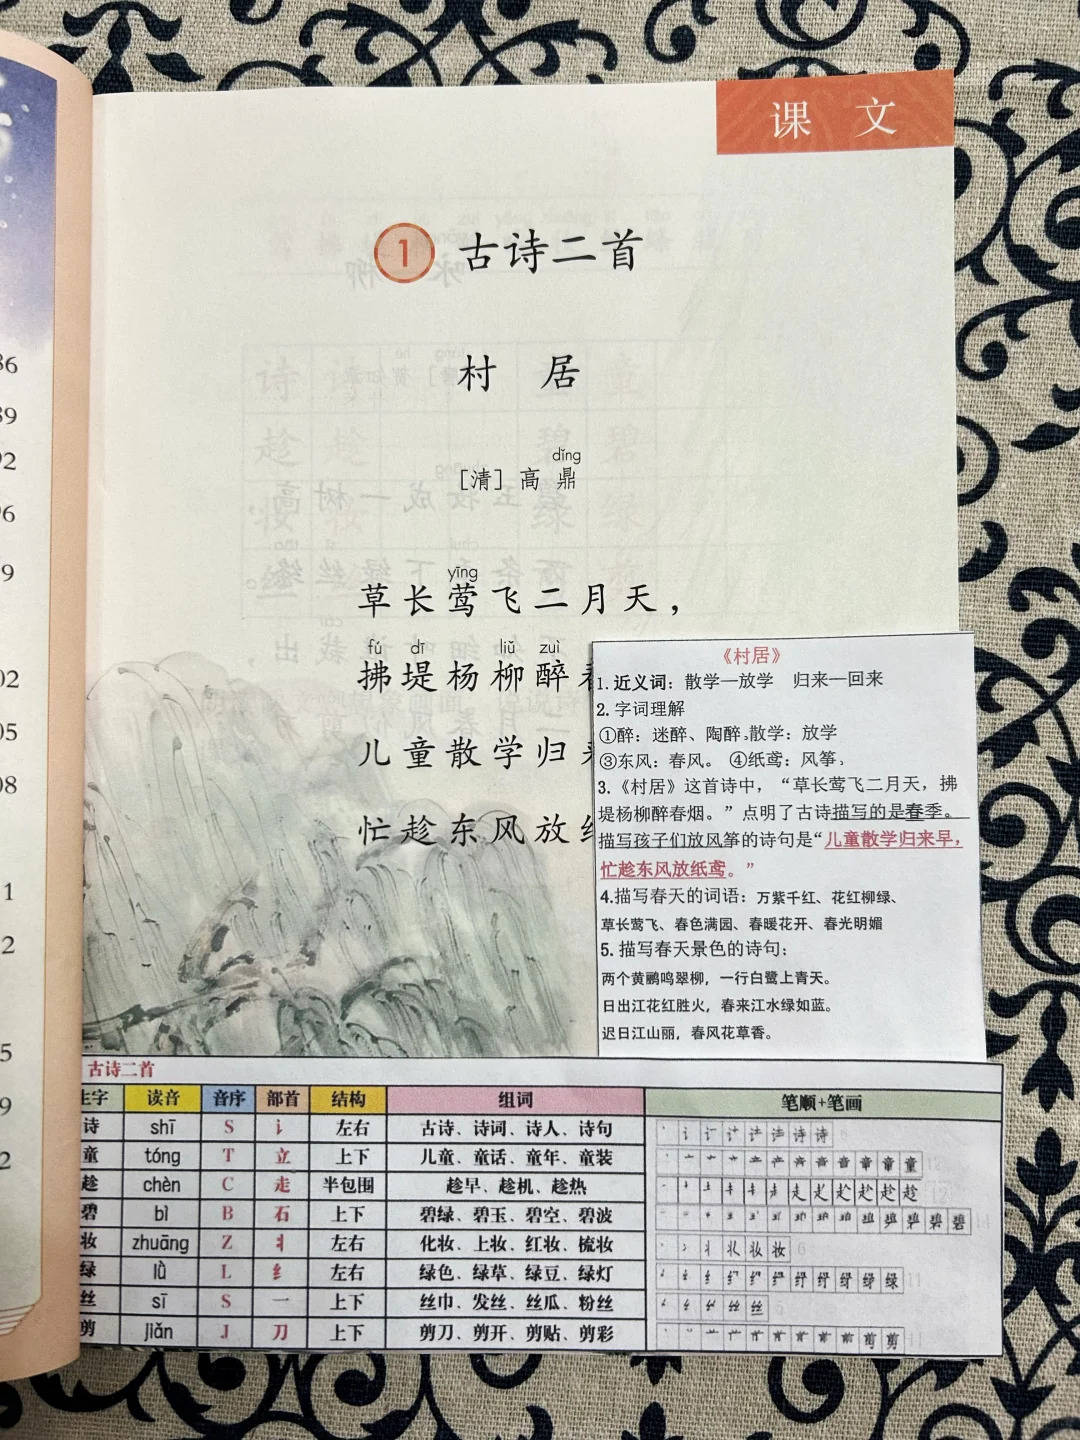 课 文
1 古诗二首
村 居
dǐng
[清] 高 鼎
yīng
草长莺飞二月天，
fú dī liǔ zuì
拂堤杨柳醉
儿童散学归来
忙趁东风放
《村居》
1. 近义词：散学—放学 归来—回来
2. 字词理解
①醉：迷醉、陶醉,散学：放学
③东风：春风。 ④纸鸢：风筝,
3.《村居》这首诗中，“草长莺飞二月天，拂
堤杨柳醉春烟。”点明了古诗描写的是春季。
描写孩子们放风筝的诗句是“儿童散学归来早，
忙趁东风放纸鸢。”
4.描写春天的词语：万紫千红、花红柳绿、
草长莺飞、春色满园、春暖花开、春光明媚
5. 描写春天景色的诗句：
两个黄鹂鸣翠柳，一行白鹭上青天。
日出江花红胜火，春来江水绿如蓝。
迟日江山丽，春风花草香。
古诗二首
生字 读音 音序 部首 结构 组词 笔顺+笔画
诗 shī S 讠 左右 古诗、诗词、诗人、诗句
童 tóng T 立 上下 儿童、童话、童年、童装
趁 chèn C 走 半包围 趁早、趁机、趁热
碧 bì B 石 上下 碧绿、碧玉、碧空、碧波
妆 zhuāng Z 丬 左右 化妆、上妆、红妆、梳妆
绿 lǜ L 纟 左右 绿色、绿草、绿豆、绿灯
丝 sī S 一 上下 丝巾、发丝、丝瓜、粉丝
剪 jiǎn J 刀 上下 剪刀、剪开、剪贴、剪彩